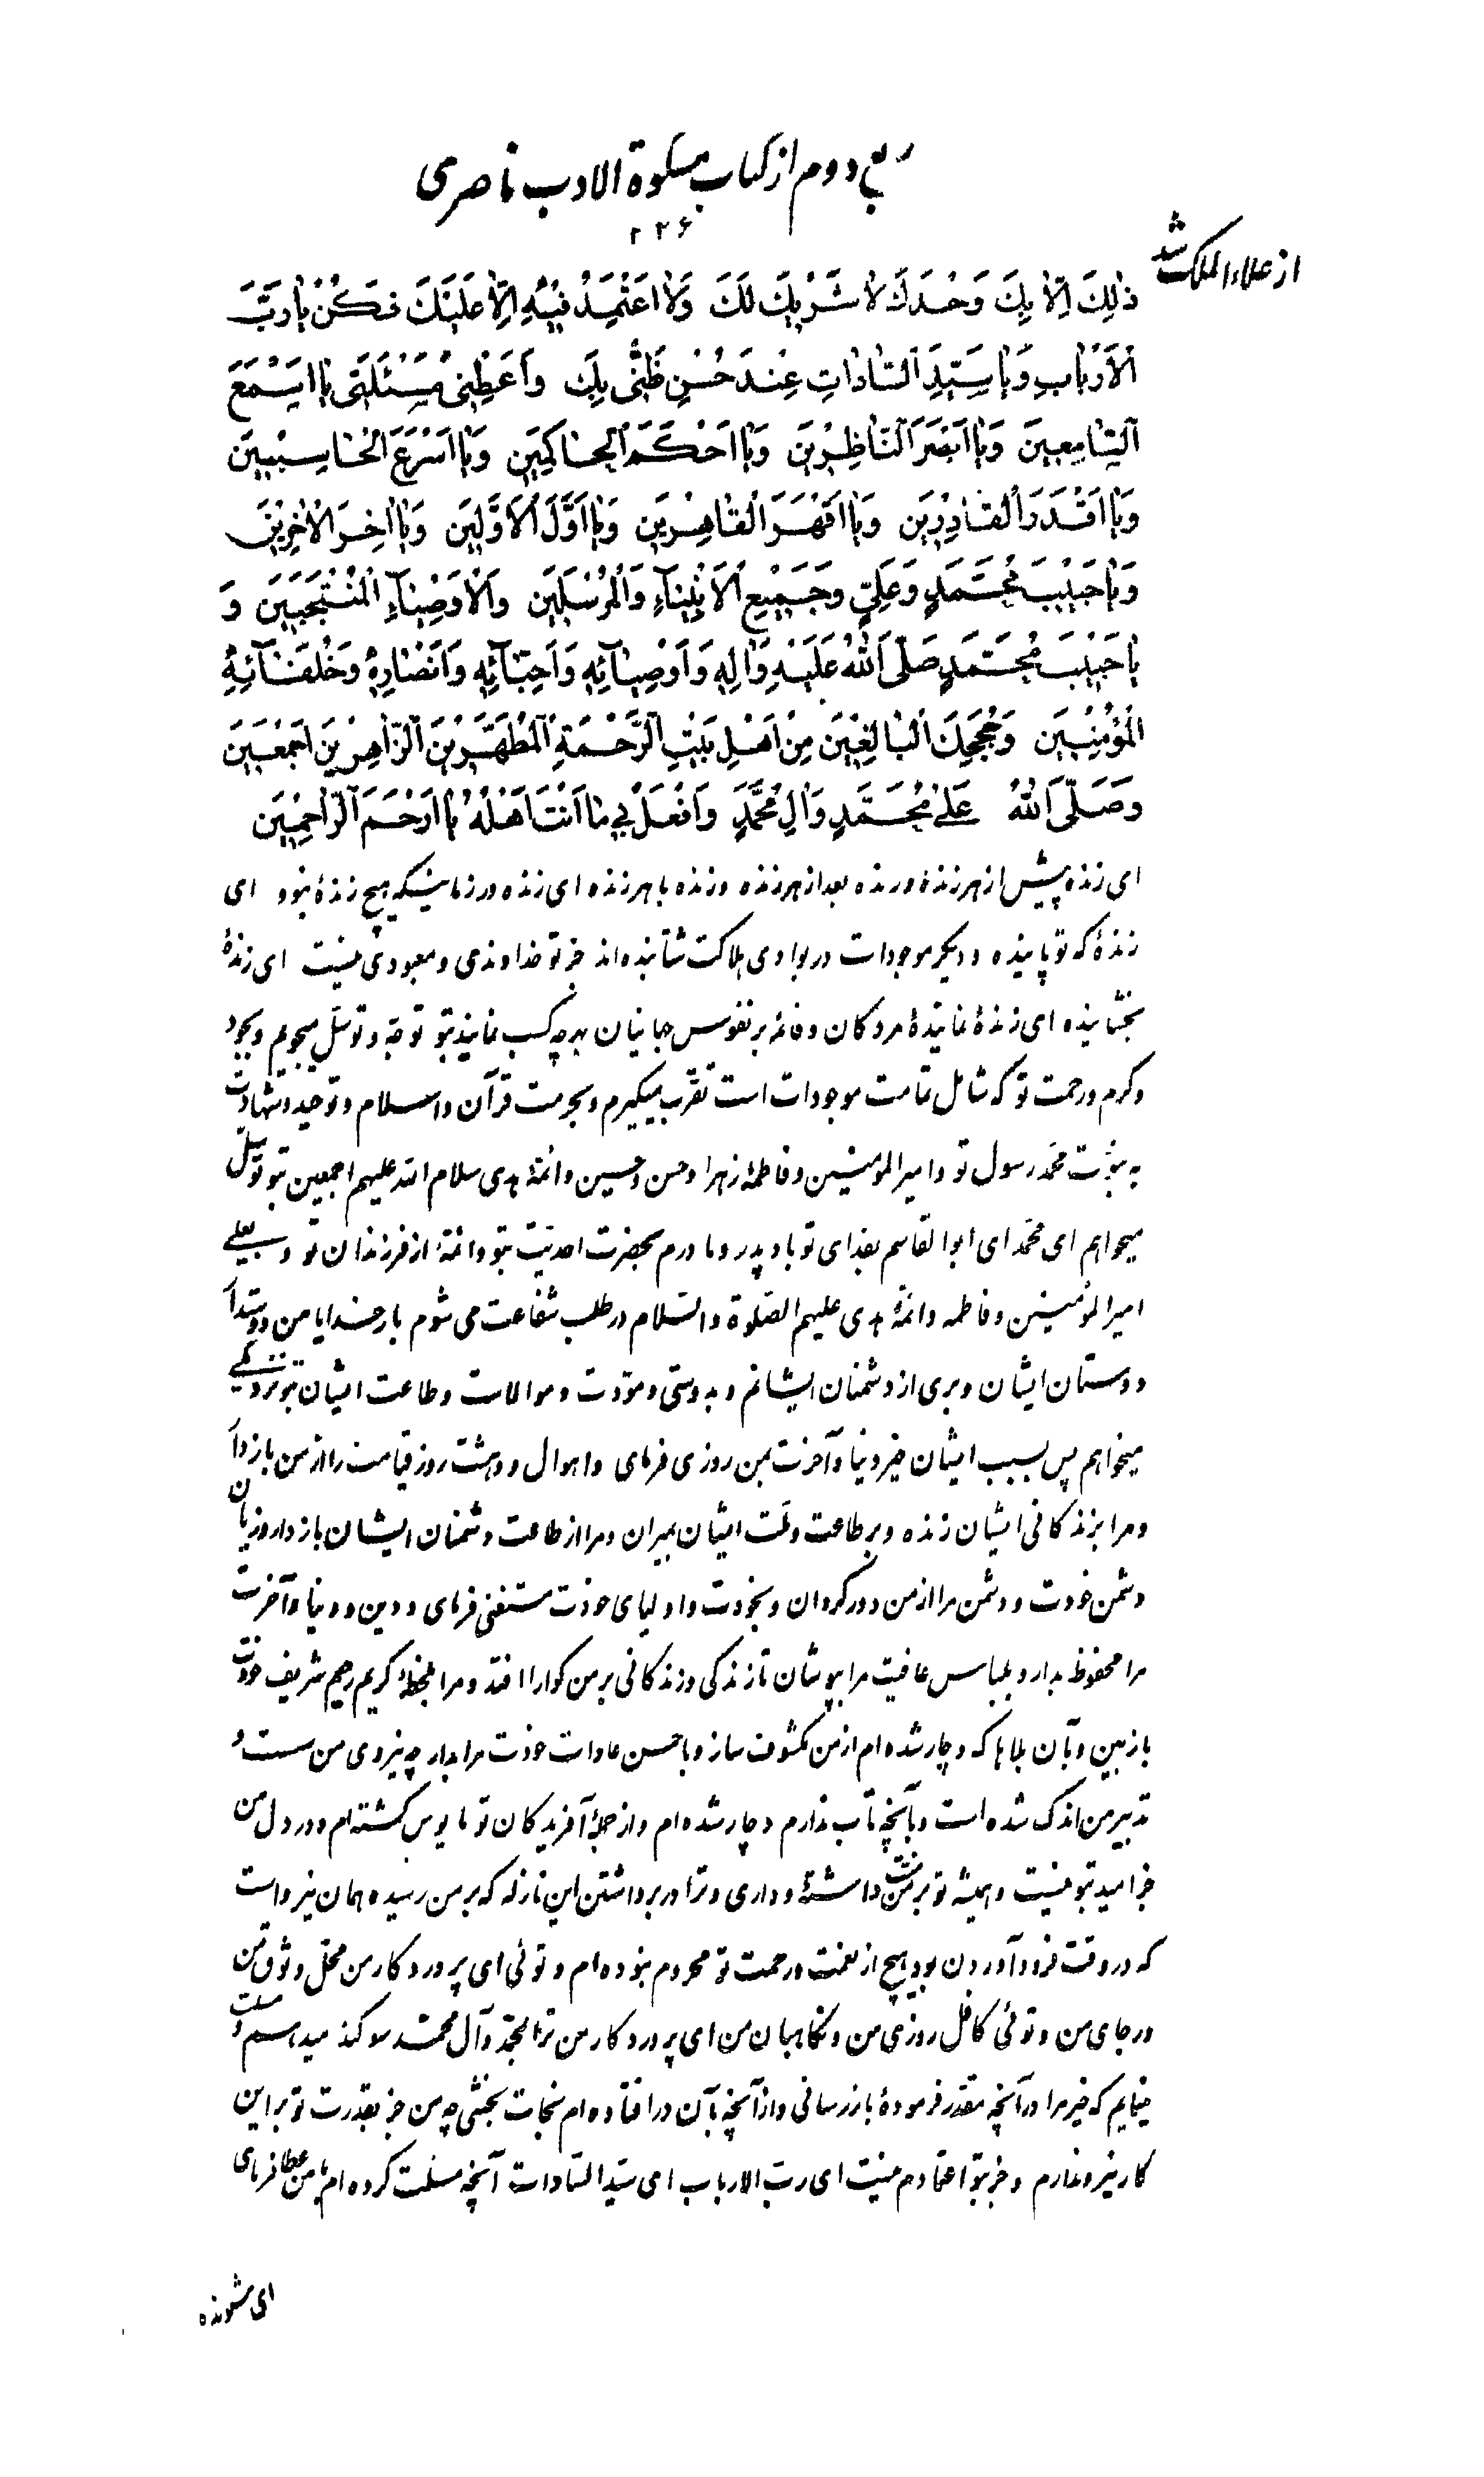 ربع دوم از کتاب مشکوة الادب ناصری
۲۲۶
از علاء الملک شد
ذٰلِكَ اِلّا بِكَ وَحْدَكَ لا شَرْيكَ لَكَ وَلا اعْتَمِدُ فيْهِ اِلّا عَلَيْكَ فَكُنْ يا رَبَّ
الْاَرْبابِ وَيا سَيِّدَ السّاداتِ عِنْدَ حُسْنِ ظَنّى بِكَ وَاَعْطِنى مَسْئَلَتى يا اَسْمَعَ
السّامِعينَ وَيا اَبْصَرَ النّاظِرينَ وَيا اَحْكَمَ الْحاكِمينَ وَيا اَسْرَعَ الْحاسِبينَ
وَيا اَقْدَرَ الْقادِرينَ وَيا اَقْهَرَ الْقاهِرينَ وَيا اَوَّلَ الْاَوَّلينَ وَيا اخِرَ الْاخِرينَ
وَيا حَبيْبَ مُحَمَّدٍ وَعَلِىٍّ وَجَميْعِ الْاَنْبِيٰاءِ وَالْمُرْسَلينَ وَالْاَوْصِيٰاءِ الْمُنْتَجَبينَ وَ
يا حَبيْبَ مُحَمَّدٍ صَلَّى اللهُ عَلَيْهِ وَالِهِ وَاَوْصِيائِهِ وَاَحِبّائِهِ وَاَنْصارِهِ وَخُلَفائِهِ
الْمُؤْمِنينَ وَحُجَجِكَ الْبالِغينَ مِنْ اَهْلِ بَيْتِ الرَّحْمَةِ الْمُطَهَّرينَ الزّاهِرينَ اَجْمَعينَ
وَصَلَّى اللهُ عَلىٰ مُحَمَّدٍ وَالِ مُحَمَّدٍ وَافْعَلْ بى ما اَنْتَ اَهْلُهُ يا اَرْحَمَ الرّاحِمينَ
ای زنده پیش از هر زندهٔ و زنده بعد از هر زنده و زنده با هر زنده ای زنده در زمانیکه هیچ زندهٔ نبود ای
زندهٔ که تو پاینده و دیگر موجودات در بوادی هلاکت شتابنده اند جز تو خداوندی و معبودی نیست ای زندهٔ
بخشاینده ای زندهٔ نمایندهٔ مردگان و قائم بر نفوس جهانیان بهرچه کسب نمایند بتو توجه و توسل میجویم و بجود
و کرم و رحمت تو که شامل تمامت موجودات است تقرب میگیرم و بحرمت قرآن و اسلام و توحید و شهادت
به نبوت محمد رسول تو و امیر المؤمنین و فاطمهٔ زهرا و حسن و حسین و ائمهٔ هدی سلام الله علیهم اجمعین بتو توسل
میجواهم ای محمد ای ابو القاسم بفدای تو باد پدر و مادرم بحضرت احدیت بتو و ائمهٔ از فرزندان تو و بعلی
امیر المؤمنین و فاطمه و ائمهٔ هدی علیهم الصلوة و السلام در طلب شفاعت می شوم بار خدایا من دوستدار
دوستان ایشان و بری از دشمنان ایشانم و به دوستی و مودت و موالات و طاعت ایشان بتو نزدیکی
میخواهم پس بسبب ایشان خیر دنیا و آخرت بمن روزی فرمای و اهوال و دهشت روز قیامت را از من بازدار
و مرا بزندگانی ایشان زنده و بر طاعت و ملت ایشان بمیران و مرا از طاعت دشمنان ایشان باز دار و زیان
دشمن خودت و دشمن مرا از من دور گردان و بخودت و اولیای خودت مستغنی فرمای و دین و دنیا و آخرت
مرا محفوظ بدار و بلباس عافیت مرا بپوشان تا زندگی و زندگانی بر من گوارا افتد و مرا بلحظهٔ کریم رحیم شریف خودت
باز بین و بآن بلاها که دچار شده ام از من مکشوف ساز و با حسن عادات خودت مرا بدار چه نیروی من سست و
تدبیر من اندک شده است و بآنچه تاب ندارم دچار شده ام و از جملهٔ آفریدگان تو مایوس گشته ام و در دل من
جز امید بتو نیست و همیشه تو بر من منت داشتهٔ و داری و ترا در برداشتن این نازله که بر من رسیده همان نیرو است
که در وقت فرود آوردن بود هیچ از نعمت و رحمت تو محروم نبوده ام و توئی ای پروردگار من محل وثوق من
و رجای من و توئی کافل روزی من و نگاهبان من ای پروردگار من ترا بمحمد و آل محمد سوگند میدهم و مسئلت
مینمایم که خیر مرا در آنچه مقدر فرمودهٔ باز رسانی و از آنچه بآن در افتاده ام نجات بخشی چه من جز بقدرت تو بر این
کار نیرو ندارم و جز بتو اعتمادم نیست ای رب الارباب ای سید السادات آنچه مسئلت کرده ام بمن عطا فرمای
ای شنونده